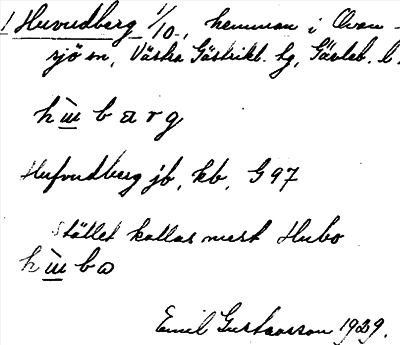 1 Huvudberg 1/10, hemman i Ovan-
sjö sn, Västra Gästrikl. hg, Gävleb. l.
h ɯ̀ b a r g
Hufvudberg jb, kb, G 97
Stället kallas mest Hubo
h ɯ̀ b ɷ
Emil Gustavsson 1929.